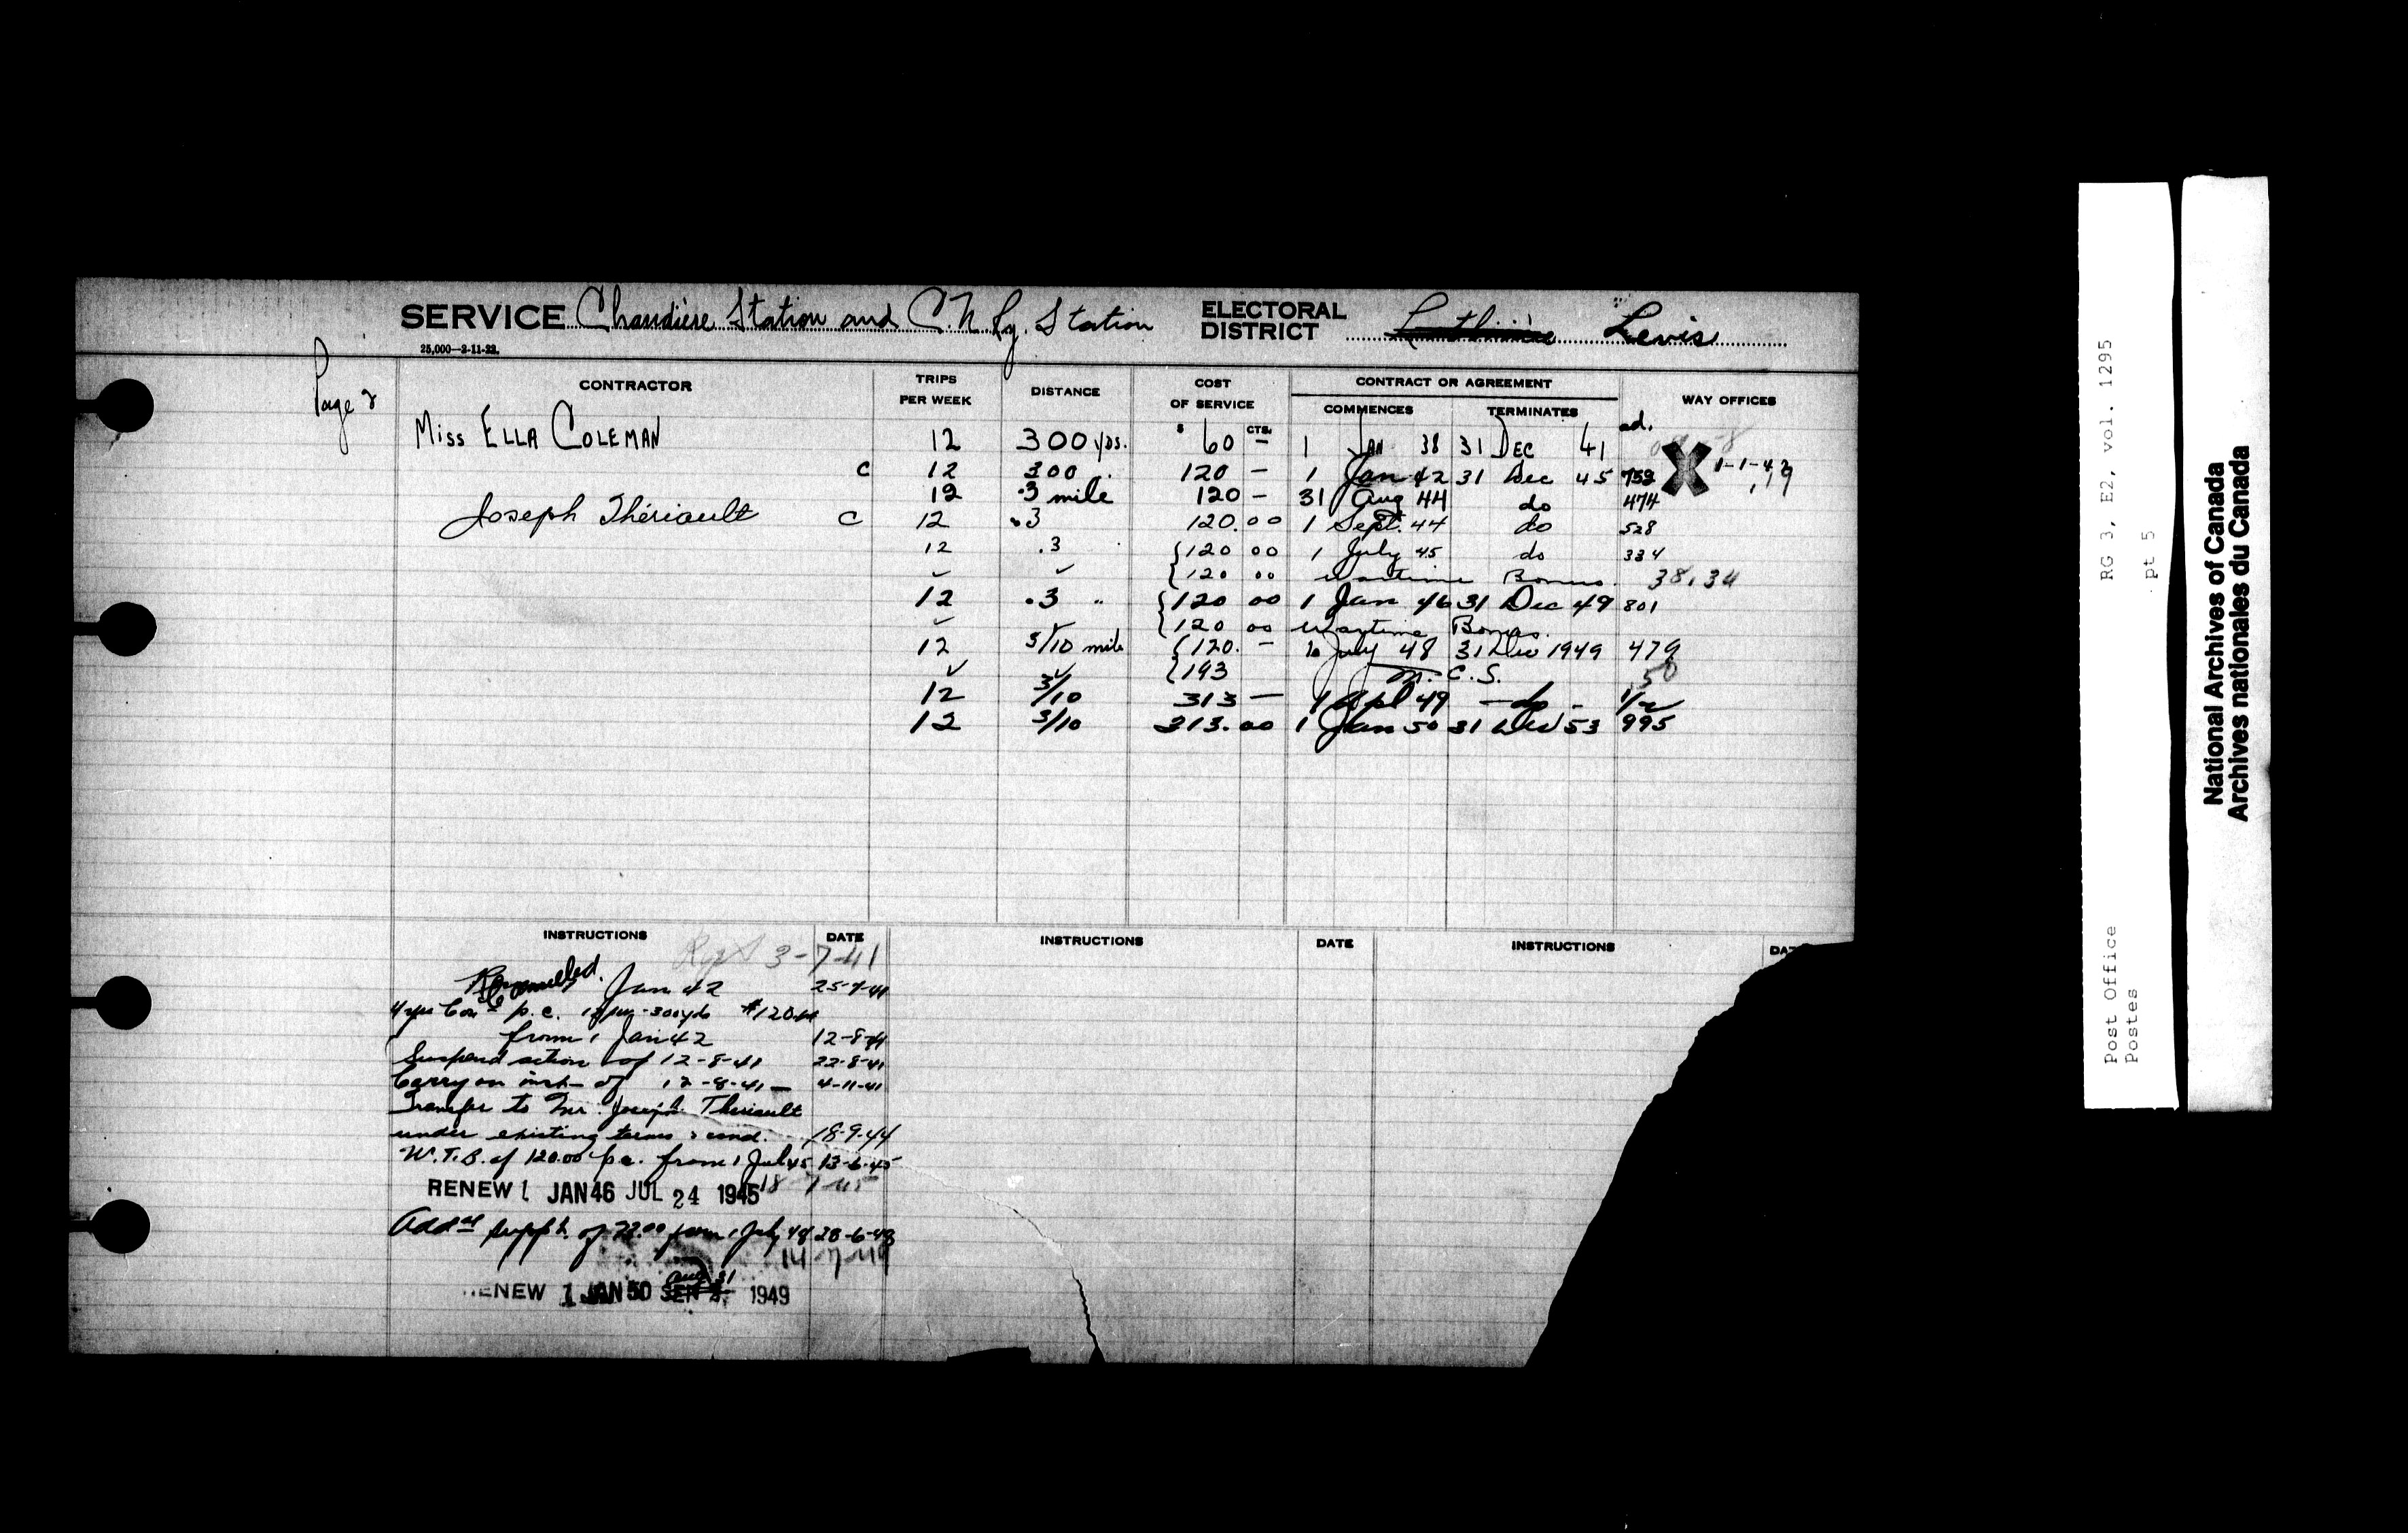 SERVICE Chaudière Station and C.N. Ry. Station ELECTORAL DISTRICT Levis
25,000—2-11-22.
Page 2
CONTRACTOR TRIPS PER WEEK DISTANCE COST OF SERVICE CONTRACT OR AGREEMENT COMMENCES TERMINATES WAY OFFICES
$ CTS. ad.
Miss ELLA COLEMAN 12 300 yds. 60 — 1 JAN 38 31 DEC 41
C 12 300 120 — 1 Jan 42 31 Dec 45 752 X 1-1-42
12 .3 mile 120 — 31 Aug 44 do 474
Joseph Thériault C 12 .3 120.00 1 Sept. 44 do 528
12 .3 120 00 1 July 45 do 334
✓ ✓ 120 00 Wartime Bonus. 38.34
12 .3 " 120 00 1 Jan 46 31 Dec 49 801
✓ ✓ 120 00 Wartime Bonus.
12 3/10 mile 120. — 1 July 48 31 Dec 1949 479
✓ ✓ 193 M.C.S. 50
12 3/10 313 — 1 Apl 49 — do — 1/2
12 3/10 313.00 1 Jan 50 31 Dec 53 995
INSTRUCTIONS DATE INSTRUCTIONS DATE INSTRUCTIONS DAT
3-7-41
Jan 42 25-7-41
4 yr Cont p.c. 12 pw - 300 yds $120.00
from 1 Jan 42 12-8-41
Suspend action of 12-8-41 22-8-41
Carry on inst of 12-8-41 — 4-11-41
Transfer to Mr. Joseph Theriault
under existing terms & cond. 18-9-44
W.T.B. of 120.00 p.a. from 1 Jul 45 13-6-45
RENEW 1 JAN 46 JUL 24 1945 18 7-45
Addnl supph. of 73.00 from 1 July 48 28-6-48
14-7-49
RENEW 1 JAN 50 Aug 31 1949
National Archives of Canada
Archives nationales du Canada
RG 3, E2, vol. 1295
pt 5
Post Office
Postes